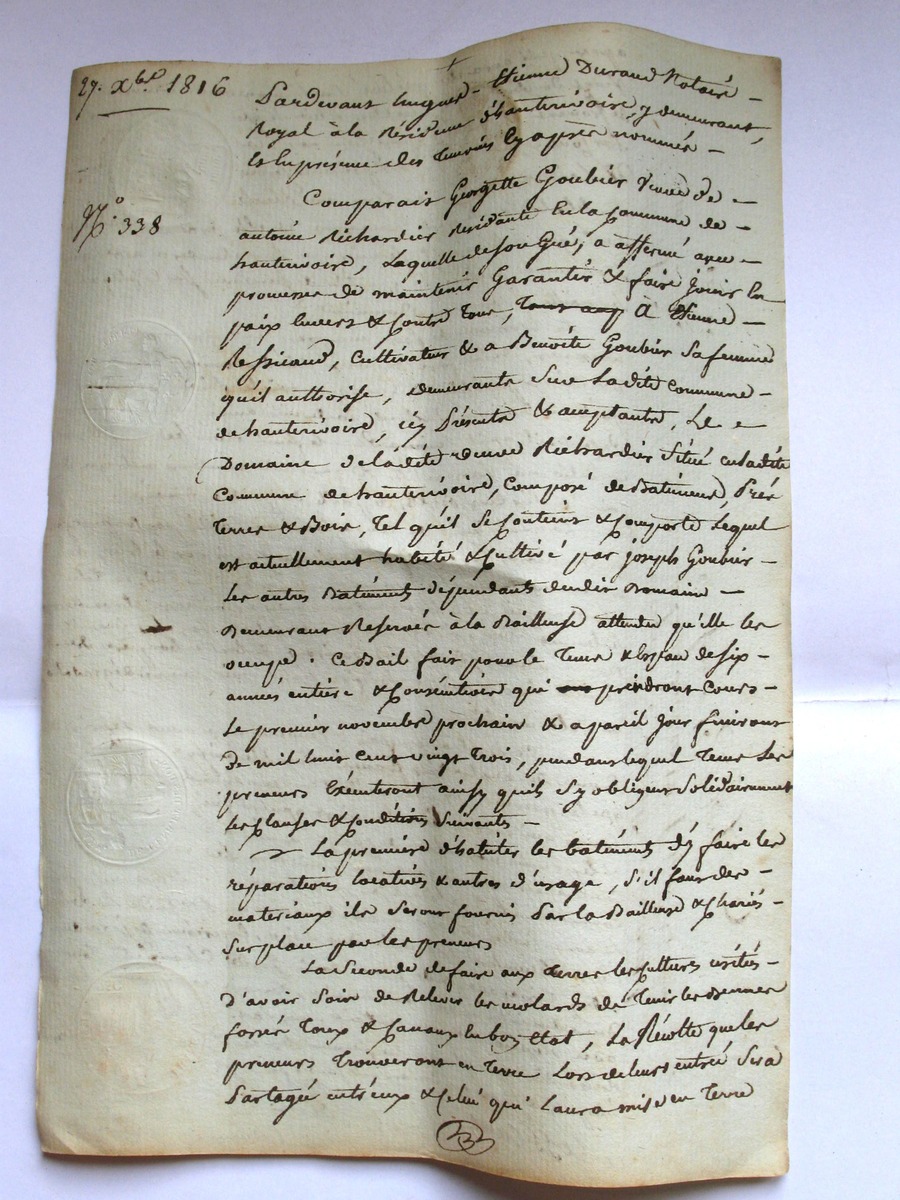 27. Xbre. 1816
Pardevant hugues - Etienne Durand Notaire -
Royal à la Résidence d'hauterivoire, y demeurant,
& En présence des Temoins Cy après nommés -
N.o 338
Comparait Georgette Goubier Veuve de -
antoine Richardier Résidante En la Commune de -
hauterivoire, Laquelle de son Gué, a affermé avec -
promesse de maintenir Garantir & faire jouir En
paix Envers & Contre Tous, à Etienne -
Ressicaud, Cultivateur & a Benoite Goubier Sa femme
qu'il authorise, demeurants Sur Ladite Commune -
de hauterivoire, icy Présents & acceptants, Le -
Domaine de ladite veuve Richardier Situé en Ladite
Commune de hauterivoire, Composé de Batiments, Prés
Terres & Bois, Tel qu'il Se Contient & Comporte Lequel
est actuellement habité & Cultivé par joseph Goubier -
Les autres Batiments dépendants dudit Domaine -
Demeurant Reservés à la Bailleuse attendu qu'elle les
occupe. Ce Bail fait pour le Tems & Espau de six -
années entière & Consécutives qui prendront Cours -
Le premier novembre prochain & a pareil jour finiront
de mil huit cent vingt Trois, pendant lequel Tems Les
preneurs Exécuteront ainsy quils S'y obligent Solidairement
Les Clauses & Conditions Suivantes -
La première d'habiter les batiments d'y faire les
réparations locatives & autres d'usage, S'il faut des -
materiaux ils Seront fournis Par La Bailleuse & Chariés -
Sur place par les preneurs
La Seconde de faire aux Terres les Cultures usitées -
D'avoir Soin de Relever les molards de Tenir les
fossés & Canaux En bon Etat, La Récolte que les
preneurs Trouveront en Terre Lors de leurs entrée Sera
Partagée entr'eux & Celui qui L'aura mise en Terre